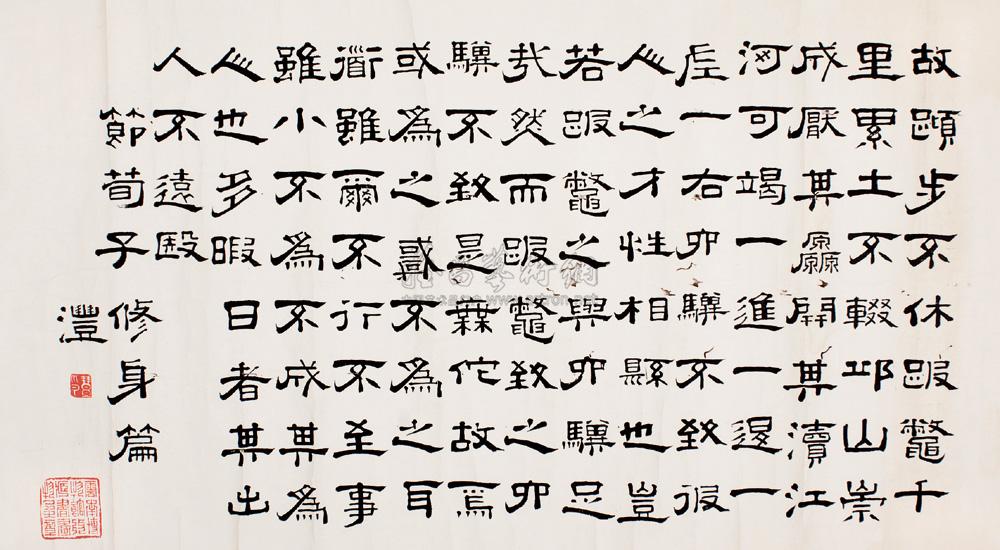 故蹞步不休跛鼈千
里累土不輟邱山崇
成厭其厵開其瀆江
河可竭一進一退一
左一右六驥不致彼
人之才性相縣也豈
若跛鼈之與六驥足
哉然而跛鼈致之六
驥不致是無佗故焉
或為之或不為之耳
衟雖爾不行不至事
雖小不為不成其為
人也多暇日者其出
人不遠殹
節荀子修身篇
灃
雅昌藝術網